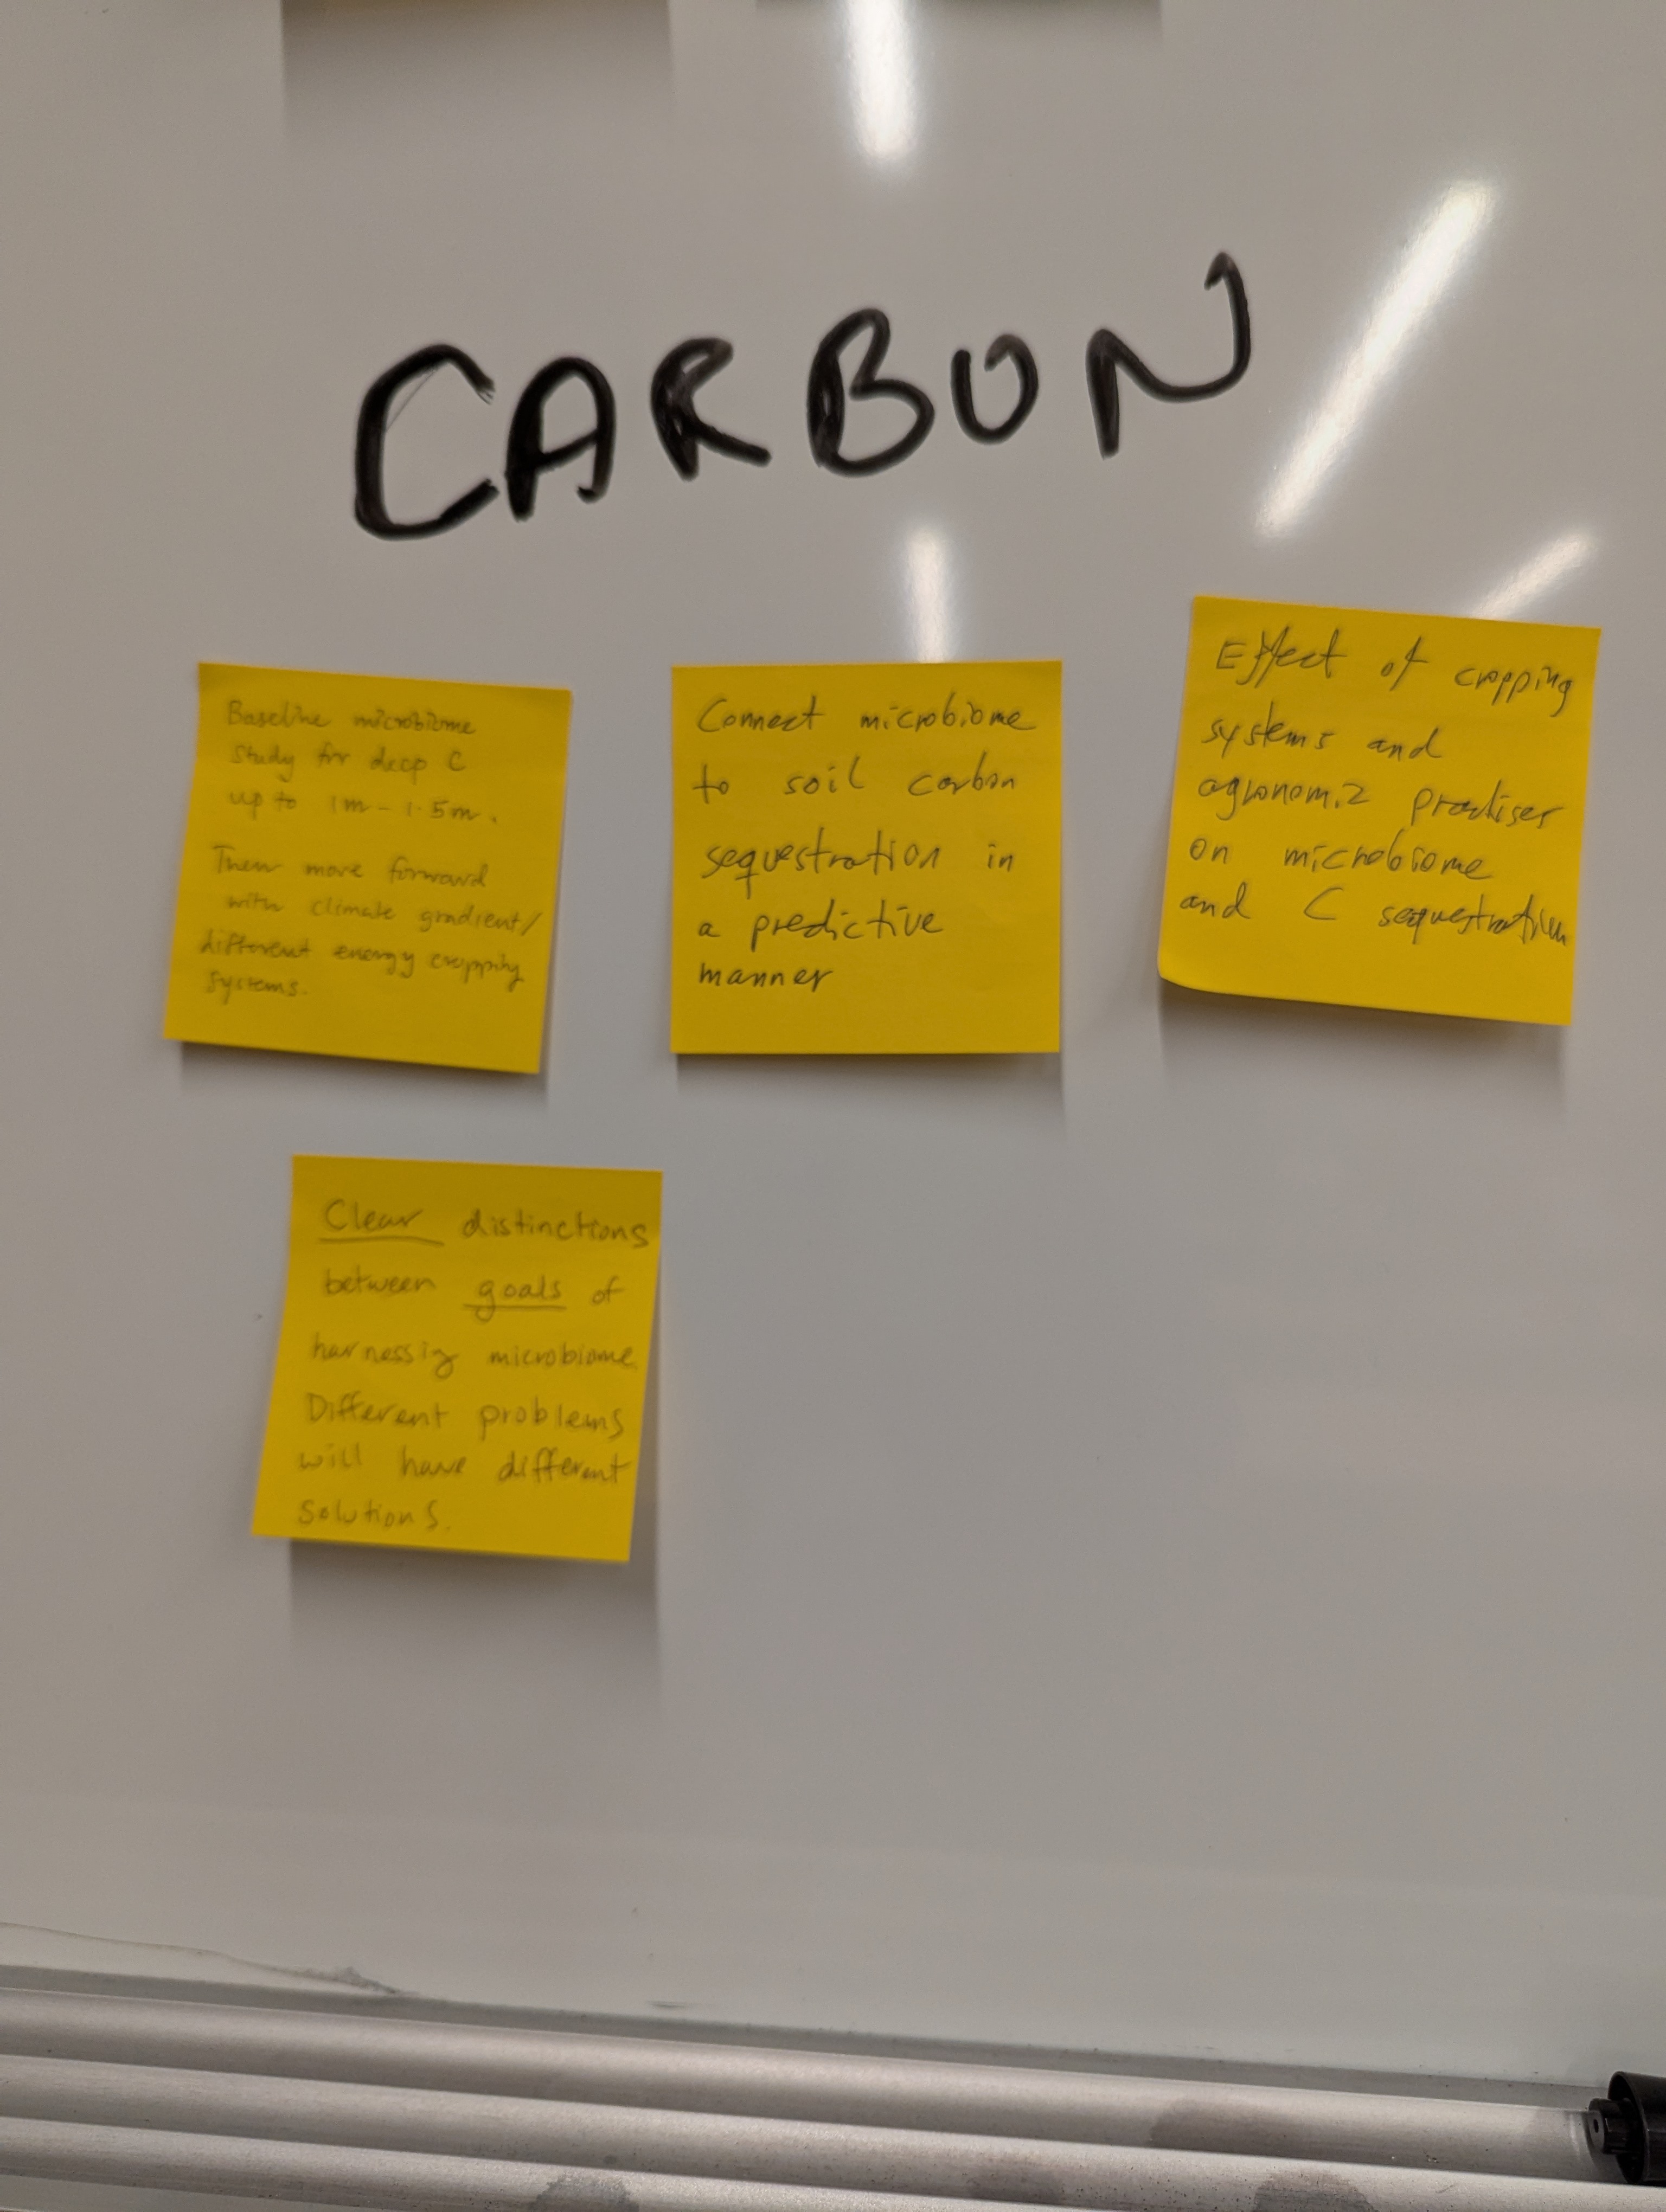 CARBON
Baseline microbiome
study for deep C
up to 1m - 1.5m.
Then move forward
with climate gradient/
different energy cropping
systems.
Connect microbiome
to soil carbon
sequestration in
a predictive
manner
Effect of cropping
systems and
agronomic practises
on microbiome
and C sequestration
Clear distinctions
between goals of
harnessig microbiome
Different problems
will have different
solutions.